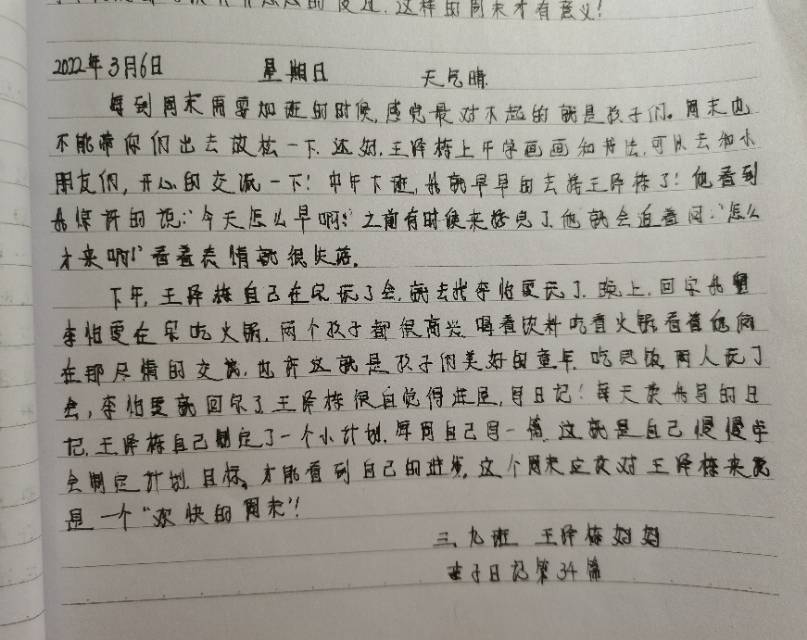 这样的周末才有意义!
2022年3月6日 星期日 天气晴
每到周末需要加班的时候,感觉最对不起的就是孩子们。周末也
不能带你们出去放松一下.还好,王泽栋上午学画画和书法,可以去和小
朋友们,开心的交流一下!中午下班,我就早早的去接王泽栋了!他看到
我惊讶的说:“今天怎么早啊!”之前有时候来接晚了他就会追着问:“怎么
才来啊!”看着表情就很失落。
下午,王泽栋自己在家玩了会,就去找李怡霏玩了.晚上,回家我望
李怡霏在家吃火锅,两个孩子都很高兴喝着饮料吃着火锅看着他俩
在那尽情的交流,也许这就是孩子们美好的童年.吃完饭,两人玩了
会,李怡霏就回家了王泽栋很自觉得进屋,写日记!每天卖我写的日
记,王泽栋自己制定了一个小计划,每周自己写一篇,这就是自己慢慢学
会制定计划,目标,才能看到自己的进步,这个周末应该对王泽栋来说
是一个“欢快的周末”!
三、九班 王泽栋妈妈
亲子日记第34篇